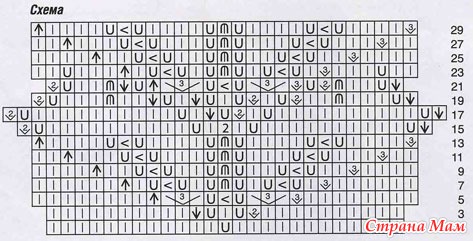 Схема
29
27
25
23
21
19
17
15
13
11
9
7
5
3
Страна Мам